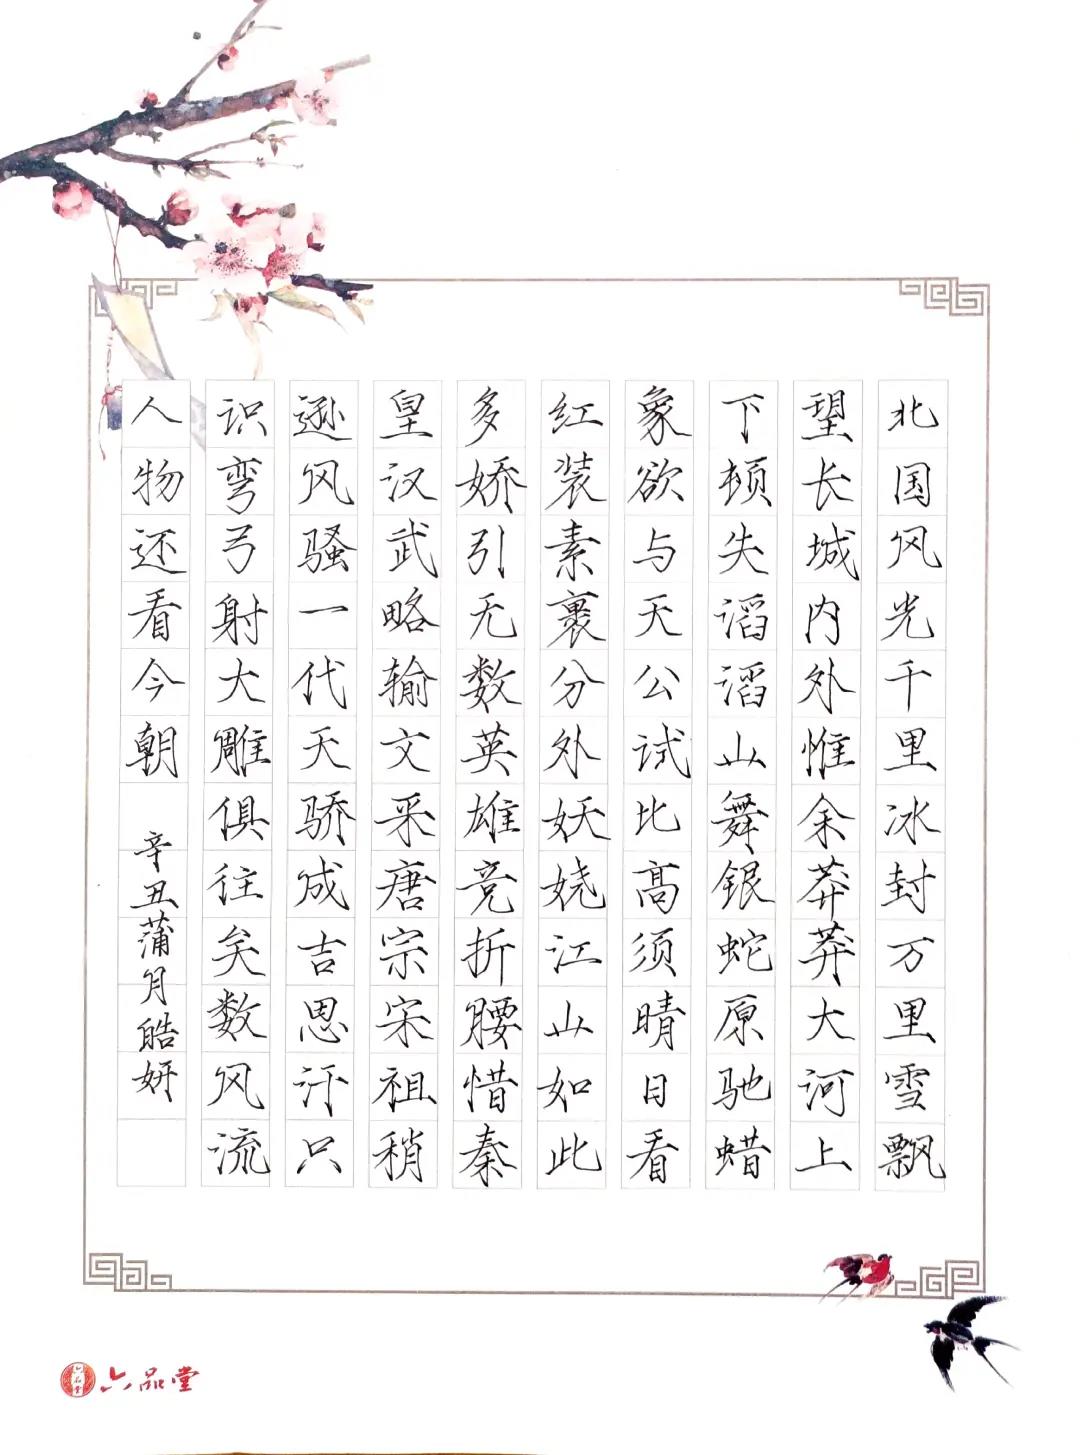 北国风光千里冰封万里雪飘
望长城内外惟余莽莽大河上
下顿失滔滔山舞银蛇原驰蜡
象欲与天公试比高须晴日看
红装素裹分外妖娆江山如此
多娇引无数英雄竞折腰惜秦
皇汉武略输文采唐宗宋祖稍
逊风骚一代天骄成吉思汗只
识弯弓射大雕俱往矣数风流
人物还看今朝 辛丑蒲月皓妍
六品堂
六品堂